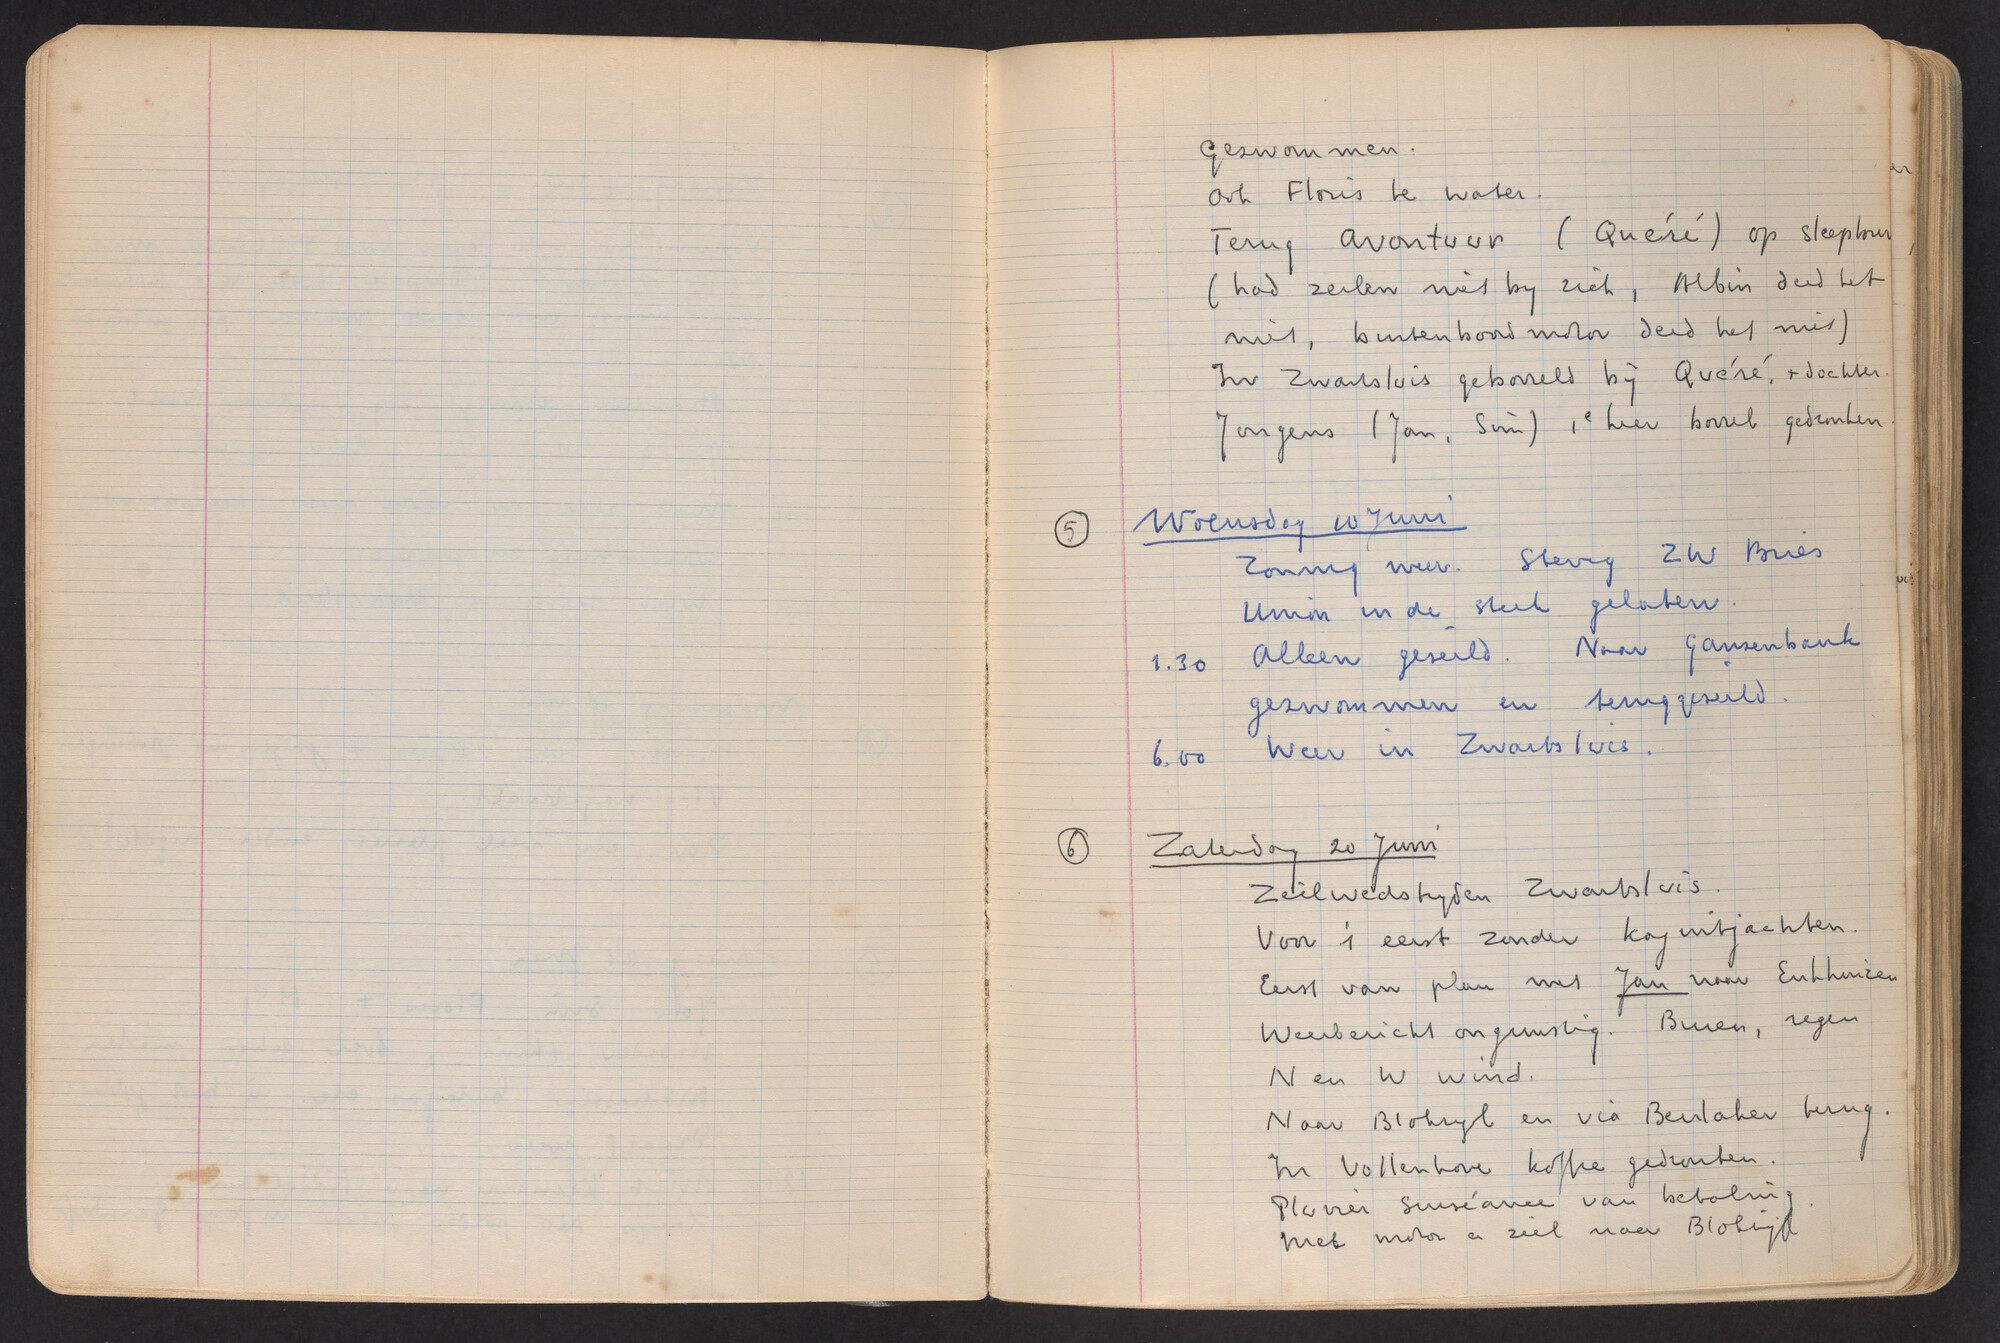 Gezwommen.
Ook Floris te water.
Terug Avontuur (Quéré) op sleeptouw
(had zeilen niet by zich, Albin deed het
niet, buitenboordmotor deed het niet)
In Zwartsluis geborreld bij Quéré, + dochter.
Jongens (Jan, Sim) 1e keer borrel gedronken.
5 Woensdag 10 Juni
Zonnig weer. Stevig ZW Bries
Union in de steek gelaten.
1.30 Alleen gezeild. Naar Ganzenbank
gezwommen en teruggezeild.
6.00 Weer in Zwartsluis.
6 Zaterdag 20 Juni
Zeilwedstryden Zwartsluis.
Voor 't eerst zonder kajuitjachten.
Eerst van plan met Jan naar Enkhuizen
Weerbericht ongunstig. Buien, regen
N en W wind.
Naar Blokzyl en via Beulaker terug.
In Vollenhove koffie gedronken.
Plavier surséance van betaling.
Met motor en zeil naar Blokzijl